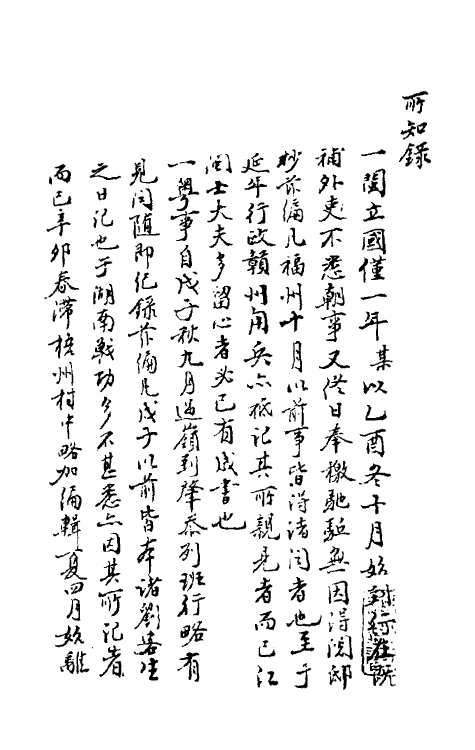 所知錄
一閩立國僅一年某以乙酉冬十月始到行在既
補外吏不悉朝事又終日奉檄馳驅無因得閱邸
抄茲編凡福州十月以前事皆得諸聞者也至于
延平行政贛州用兵亦祗記其所親見者而已江
閩士大夫多留心者必已有成書也
一粵事自戊子秋九月過嶺到肇忝列班行略有
見聞隨即紀錄茲編凡戊子以前皆本諸劉客生
之日記也于湖南戰功多不甚悉亦因其所記者
而已辛卯春滯梧州村中略加編輯夏四月始離